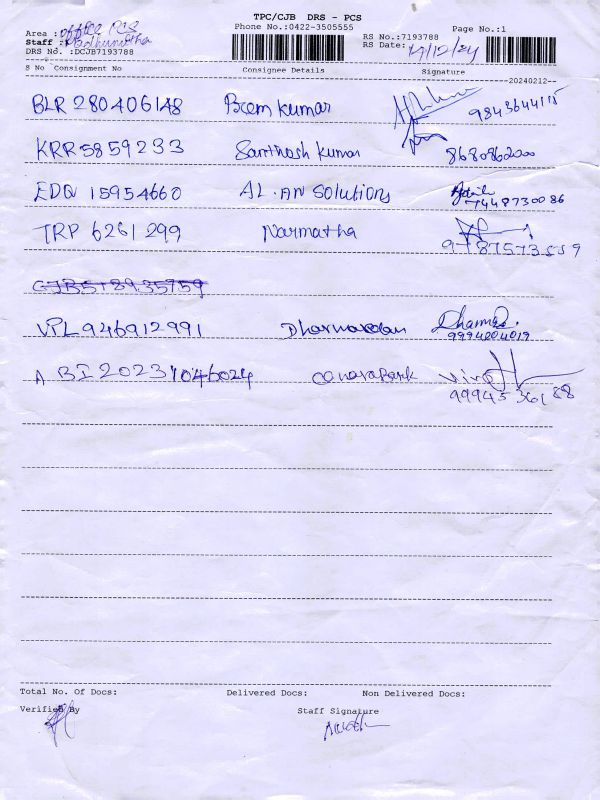 TPC/CJB DRS - PCS
Phone No.:0422-3505555
Page No.:1
Area : office PCS
RS No.:7193788
Staff :
RS Date: 14/12/24
DRS No. :DCJB7193788
S No Consignment No Consignee Details Signature
--20240212--
BLR 280406148 Prem kumar 9843644115
KRR 5859233 Santhosh kumar 8680862000
EDQ 15954660 AL.AN Solutions 7448730086
TRP 6261299 Narmatha 9787573559
CJB518935759
VPL 946912991 Dharwardan 9994204019
ABI 20231046024 canarabank 9994536188
Total No. Of Docs: Delivered Docs: Non Delivered Docs:
Verified By Staff Signature